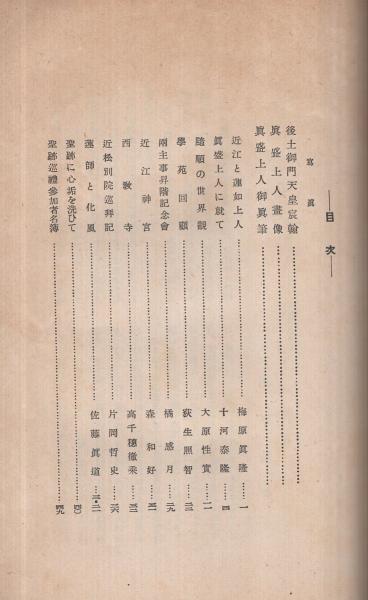 ―目次―
寫眞
後土御門天皇宸翰
眞盛上人畫像
眞盛上人御眞筆
近江と蓮如上人 梅原眞隆 一
眞盛上人に就て 十河泰隆 四
踏願の世界觀 大原性實 一一
學苑回顧 荻生照智 二三
兩主事昇階記念會 橘惑月 二九
近江神宮 森和好 三一
西敎寺 高千穗徹乘 三三
近松別院巡拜記 片岡哲史 三六
蓮師と化風 佐藤眞道
聖跡に心垢を洗ひて 四〇
聖跡巡禮參加者名簿 四九